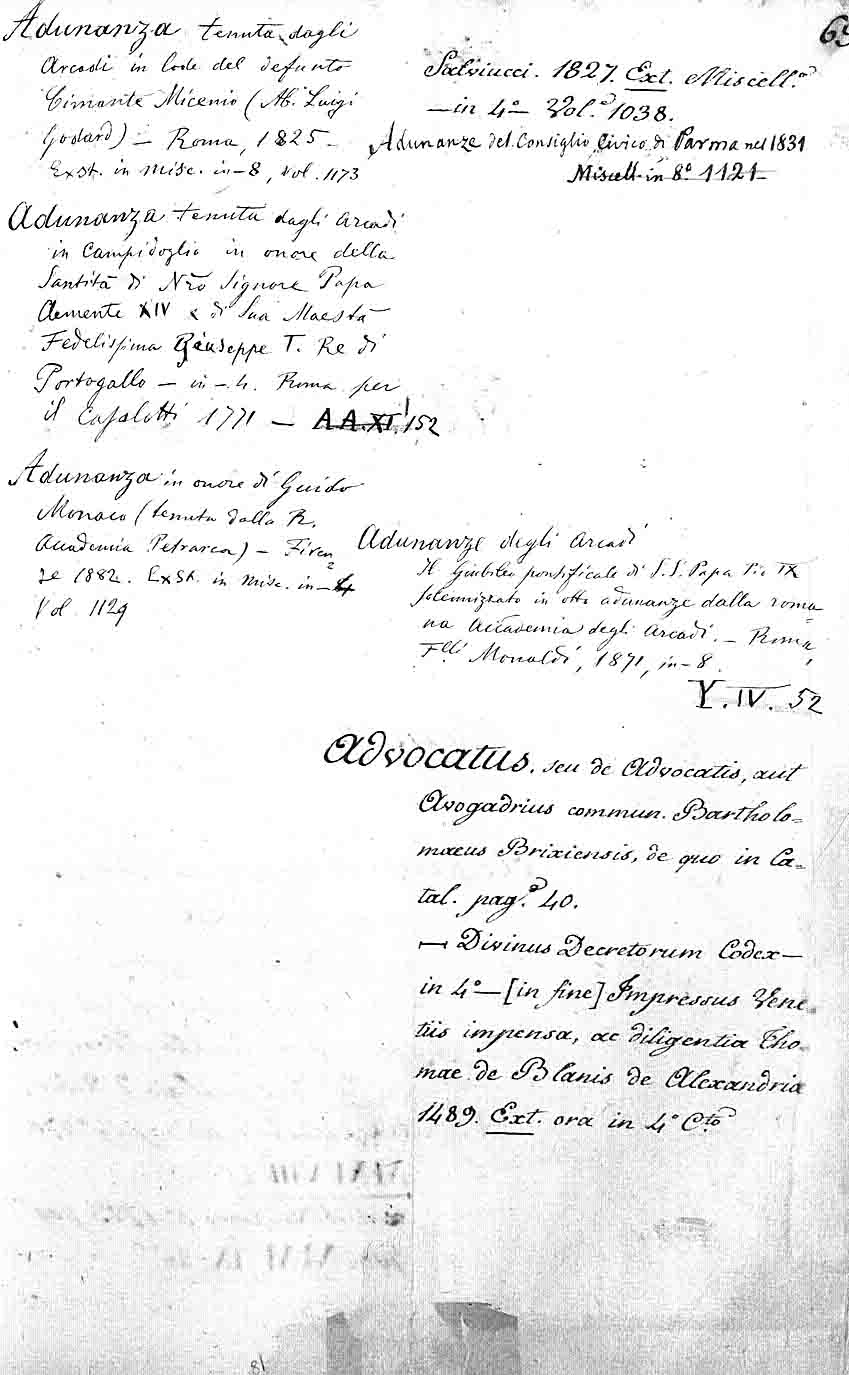 65
Adunanza tenuta dagli
Arcadi in lode del defunto
Cimante Micenio (Ab. Luigi
Godard) — Roma, 1825 —
Exst. in misc. in-8, vol. 1173
Adunanza tenuta dagli Arcadi
in Campidoglio in onore della
Santità di Nrō Signore Papa
Clemente XIV e di Sua Maestà
Fedelissima Giuseppe I. Re di
Portogallo — in-4. Roma per
il Casaletti 1771 — AA.XI. 152
Adunanza in onore di Guido
Monaco (tenuta dalla R.
Accademia Petrarca) — Firen
ze 1882. Exst. in misc. in-4
Vol. 1129
Salviucci. 1827. Ext. Miscell.ª
— in 4º Vol.e 1038.
Adunanze del Consiglio Civico di Parma nel 1831
Miscell. in 8º 1121
Adunanze degli Arcadi
Il Giubileo pontificale di S.S. Papa Pio IX
solennizzato in otto adunanze dalla roma=
na Accademia degli Arcadi. — Roma,
F.lli Monaldi, 1871, in-8.
Y. IV. 52
Advocatus, seu de Advocatis, aut
Avogadrius commun. Bartholo=
maeus Brixiensis, de quo in Ca=
tal. pag.e 40.
— Divinus Decretorum Codex —
in 4º — [in fine] Impressus Vene
tiis impensa, ac diligentia Tho
mae de Blanis de Alexandria
1489. Ext. ora in 4º C.to
81